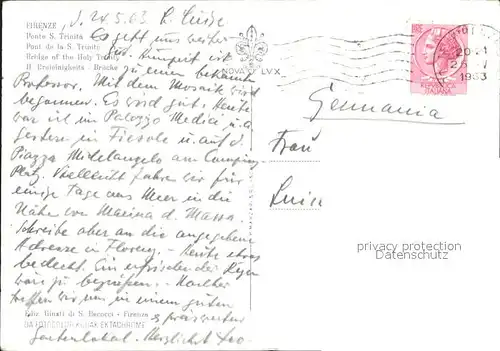 FIRENZE
Ponte S. Trinità
Pont de la S. Trinité
Bridge of the Holy Trinity
H Dreieinigkeits Brücke
, d. 24.5.63. L. Luise
Es geht uns weiter
gut. Kunigut ist
zu einem bekannten
Professor. Mit dem Mosaik wird
begonnen. Es wird gut. Heute
war ich im Palazzo Medici u. a.
Gestern in Fiesole u. auf d.
Piazza Michelangelo am Camping-
platz. Vielleicht fahren wir für
einige Tage ans Meer in die
Nähe von Marina d. Massa.
Schreibe aber an die angegebene
Adresse in Florenz. - Heute etwas
bedeckt. Ein erfrischender Regen
wäre zu begrüßen. - Nachher
treffen wir uns in einem guten
& preiswerten
Gartenlokal. Herzlichst
Ediz. Giusti di S. Becocci - Firenze
DA FOTOCOLOR KODAK EKTACHROME
NOVA EX LVX
LIRE
REPVBBLICA
ITALIANA
20-21
1963
Germania
Frau
Luise
privacy protection
Datenschutz